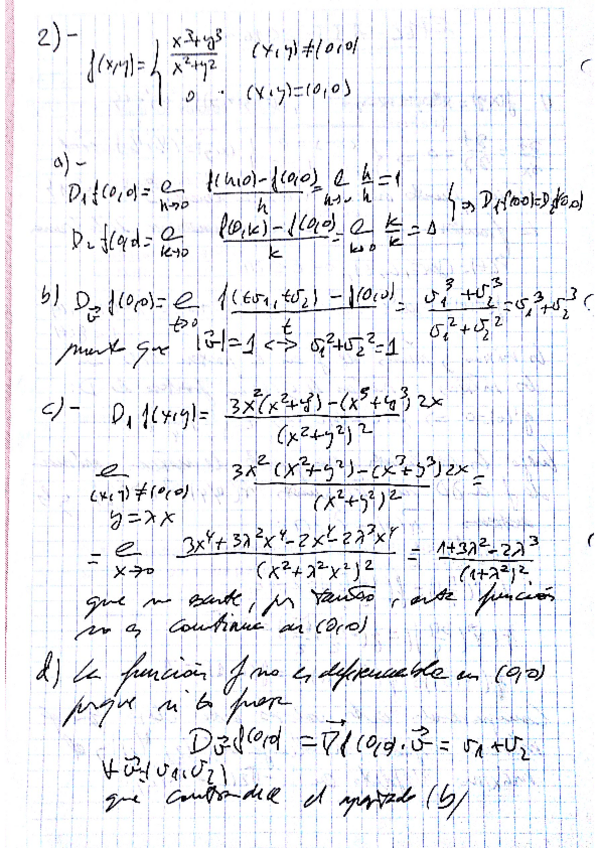 2)-
f(x,y) = { x³+y³ / x²+y² (x,y)≠(0,0)
0 (x,y)=(0,0)
a)-
D₁f(0,0) = l h→0 f(h,0)-f(0,0) / h = l h→0 h/h = 1
D₂f(0,0) = l k→0 f(0,k)-f(0,0) / k = l k→0 k/k = 1 } ⇒ D₁f(0,0)=D₂f(0,0)
b) D_v⃗ f(0,0) = l t→0 f(tv₁,tv₂) - f(0,0) / t = v₁³+v₂³ / v₁²+v₂² = v₁³+v₂³
puesto que |v⃗|=1 <-> v₁²+v₂²=1
c)- D₁ f(x,y) = 3x²(x²+y²)-(x³+y³)2x / (x²+y²)²
l (x,y)≠(0,0) y=λx 3x²(x²+y²)-(x³+y³)2x / (x²+y²)² =
= l x→0 3x⁴+3λ²x⁴-2x⁴-2λ³x⁴ / (x²+λ²x²)² = 1+3λ²-2λ³ / (1+λ²)²
que no existe, por tanto, esta función
no es continua en (0,0)
d) La función f no es diferenciable en (0,0)
porque si lo fuera
D_v⃗ f(0,0) = ∇⃗f(0,0)·v⃗ = v₁+v₂
∀ v⃗=(v₁,v₂)
que contradice el apartado (b)